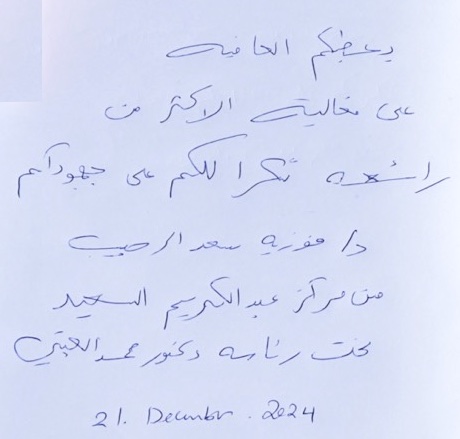 يعطيكم العافيه
على فعاليته الاكثر من
رائعه شكرا لكم على جهودكم
د/ فوزيه سعد الرحيب
من مركز عبدالكريم السعيد
تحت رئاسه دكتور محمد العتيبي
21. December. 2024